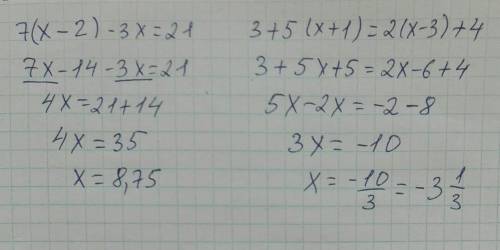 7(x-2)-3x=21
7x-14-3x=21
4x=21+14
4x=35
x=8,75
3+5(x+1)=2(x-3)+4
3+5x+5=2x-6+4
5x-2x=-2-8
3x=-10
x=-10/3=-3 1/3